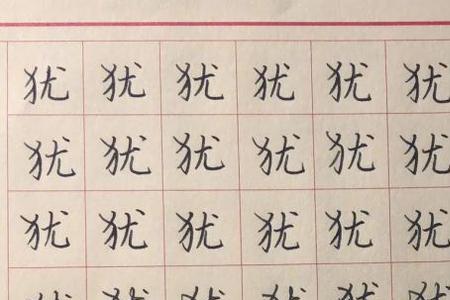 犹犹犹犹犹犹
犹犹犹犹犹犹
犹犹犹犹犹犹